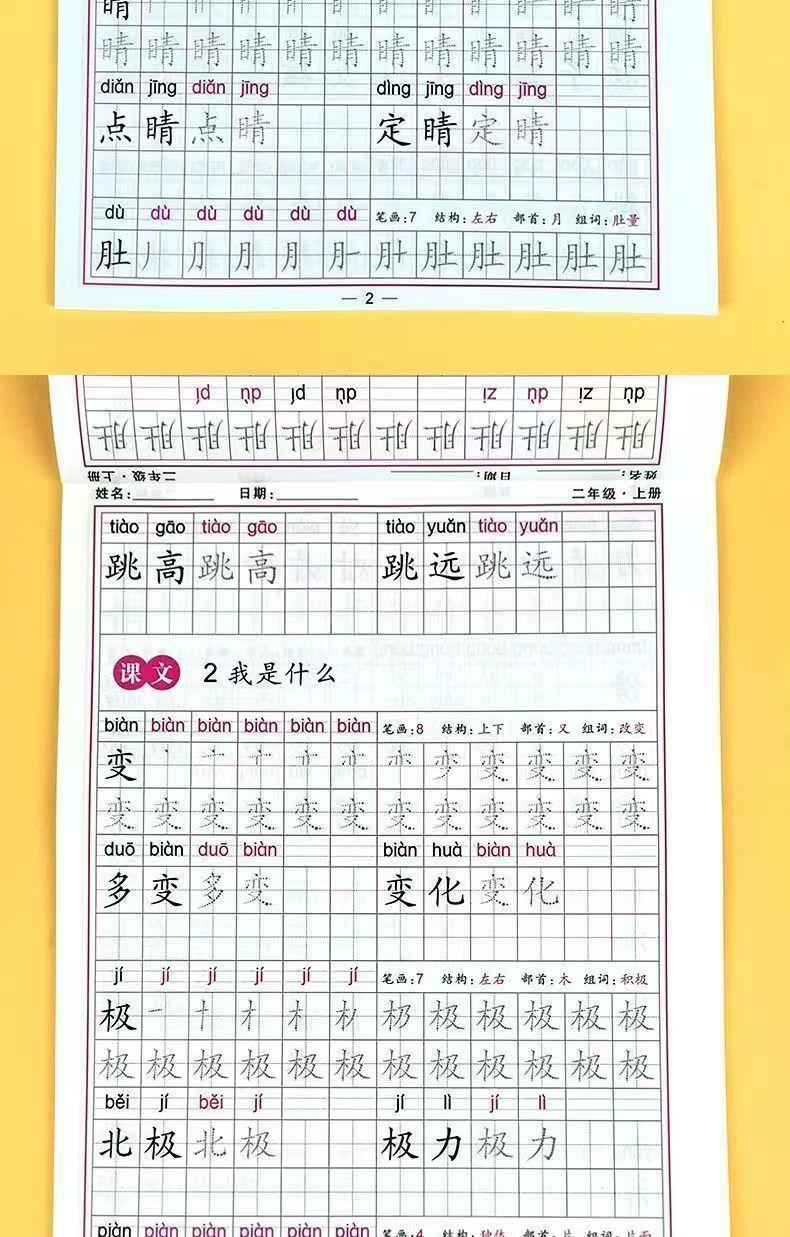 睛
睛 睛 睛 睛 睛 睛 睛 睛 睛 睛 睛 睛
diǎn jīng diǎn jīng dìng jīng dìng jīng
点 睛 点 睛 定 睛 定 睛
dù dù dù dù dù dù 笔画:7 结构:左右 部首:月 组词:肚量
肚 肚 肚 肚 肚 肚 肚
— 2 —
姓名: 日期: 二年级·上册
tiào gāo tiào gāo tiào yuǎn tiào yuǎn
跳 高 跳 高 跳 远 跳 远
课文 2 我是什么
biàn biàn biàn biàn biàn biàn 笔画:8 结构:上下 部首:又 组词:改变
变 变 变 变 变
变 变 变 变 变 变 变 变 变 变 变 变
duō biàn duō biàn biàn huà biàn huà
多 变 多 变 变 化 变 化
jí jí jí jí jí jí 笔画:7 结构:左右 部首:木 组词:积极
极 极 极 极 极 极
极 极 极 极 极 极 极 极 极 极 极 极
běi jí běi jí jí lì jí lì
北 极 北 极 极 力 极 力
piàn piàn piàn piàn piàn piàn 笔画:4 结构:独体 部首:片 组词:片面